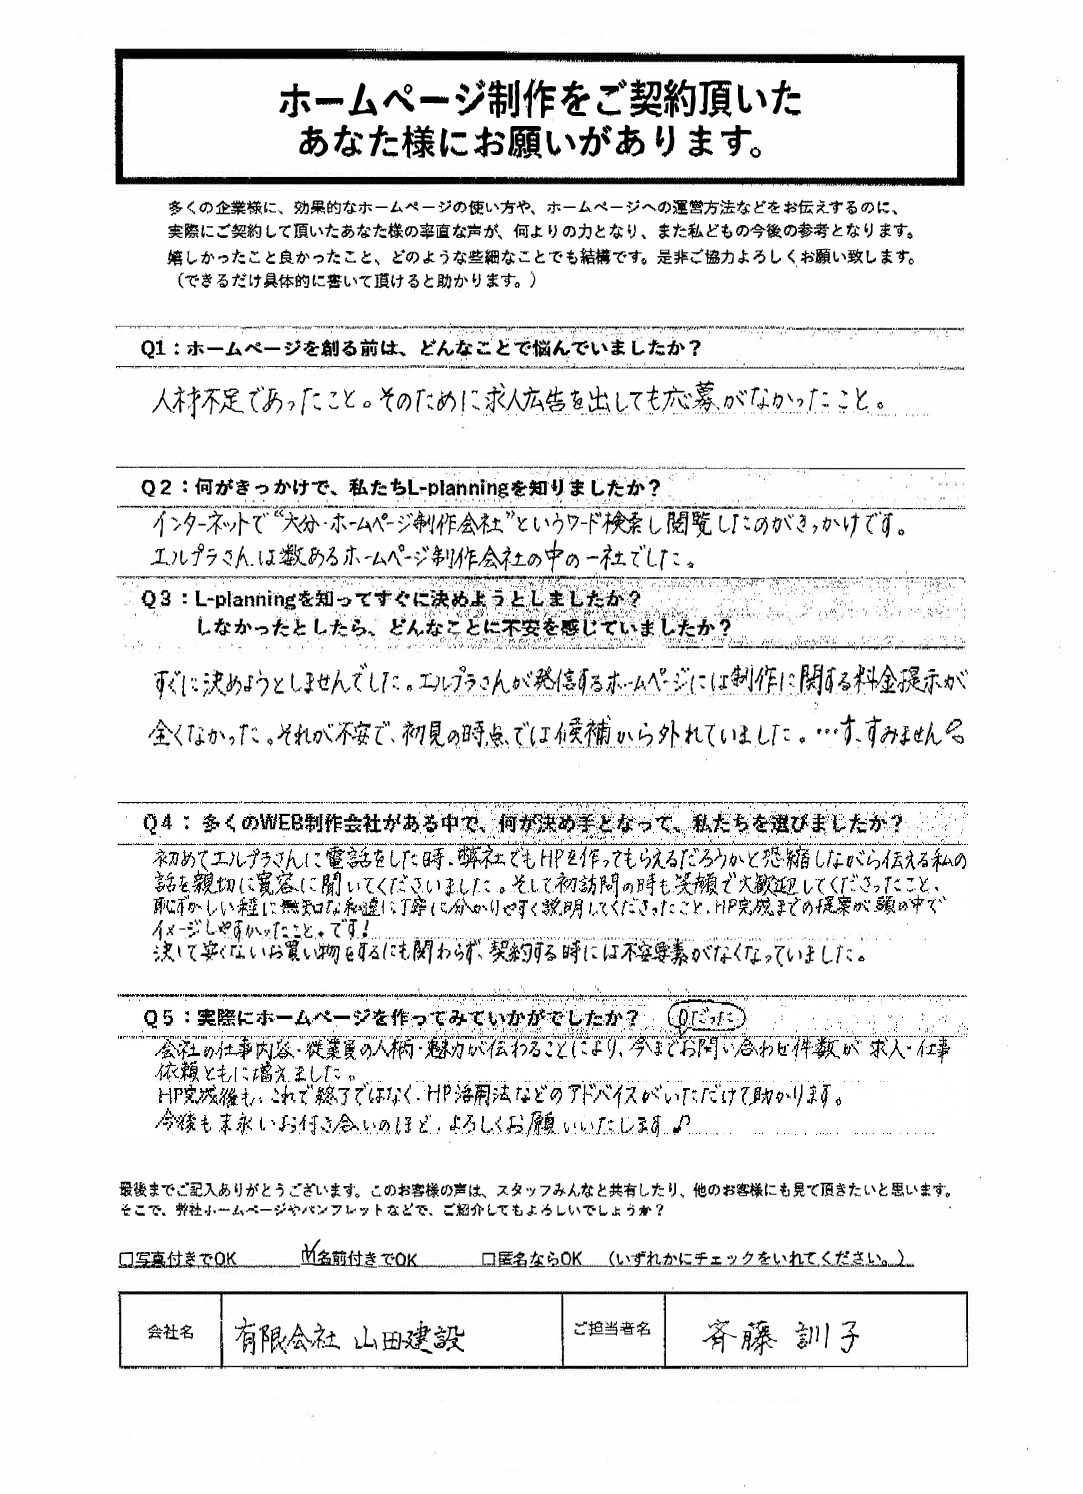 ホームページ制作をご契約頂いた
あなた様にお願いがあります。
多くの企業様に、効果的なホームページの使い方や、ホームページへの運営方法などをお伝えするのに、
実際にご契約して頂いたあなた様の率直な声が、何よりの力となり、また私どもの今後の参考となります。
嬉しかったこと良かったこと、どのような些細なことでも結構です。是非ご協力よろしくお願い致します。
（できるだけ具体的に書いて頂けると助かります。）
Q1：ホームページを創る前は、どんなことで悩んでいましたか？
人材不足であったこと。そのために求人広告を出しても応募がなかったこと。
Q2：何がきっかけで、私たちL-planningを知りましたか？
インターネットで“大分・ホームページ制作会社”というワード検索し閲覧したのがきっかけです。
エルプラさんは数あるホームページ制作会社の中の一社でした。
Q3：L-planningを知ってすぐに決めようとしましたか？
しなかったとしたら、どんなことに不安を感じていましたか？
すぐに決めようとしませんでした。エルプラさんが発信するホームページには制作に関する料金提示が
全くなかった。それが不安で、初見の時点では候補から外れていました。…す、すみません
Q4：多くのWEB制作会社がある中で、何が決め手となって、私たちを選びましたか？
初めてエルプラさんに電話をした時、弊社でもHPを作ってもらえるだろうかと恐縮しながら伝える私の
話を親切に寛容に聞いてくださいました。そして初訪問の時も笑顔で大歓迎してくださったこと、
恥ずかしい程に無知な私達に丁寧に分かりやすく説明してくださったこと、HP完成までの提案が頭の中で
イメージしやすかったこと。です！
決して安くないお買い物をするにも関わらず、契約する時には不安要素がなくなっていました。
Q5：実際にホームページを作ってみていかがでしたか？ Qだった
会社の仕事内容・従業員の人柄・魅力が伝わることにより、今までお問い合わせ件数が求人・仕事
依頼ともに増えました。
HP完成後も、これで終了ではなく、HP活用法などのアドバイスがいただけて助かります。
今後も末永いお付き合いのほど、よろしくお願いいたします♪
最後までご記入ありがとうございます。このお客様の声は、スタッフみんなと共有したり、他のお客様にも見て頂きたいと思います。
そこで、弊社ホームページやパンフレットなどで、ご紹介してもよろしいでしょうか？
□写真付きでOK ☑名前付きでOK □匿名ならOK （いずれかにチェックをいれてください。）
会社名 有限会社 山田建設 ご担当者名 斉藤 訓子